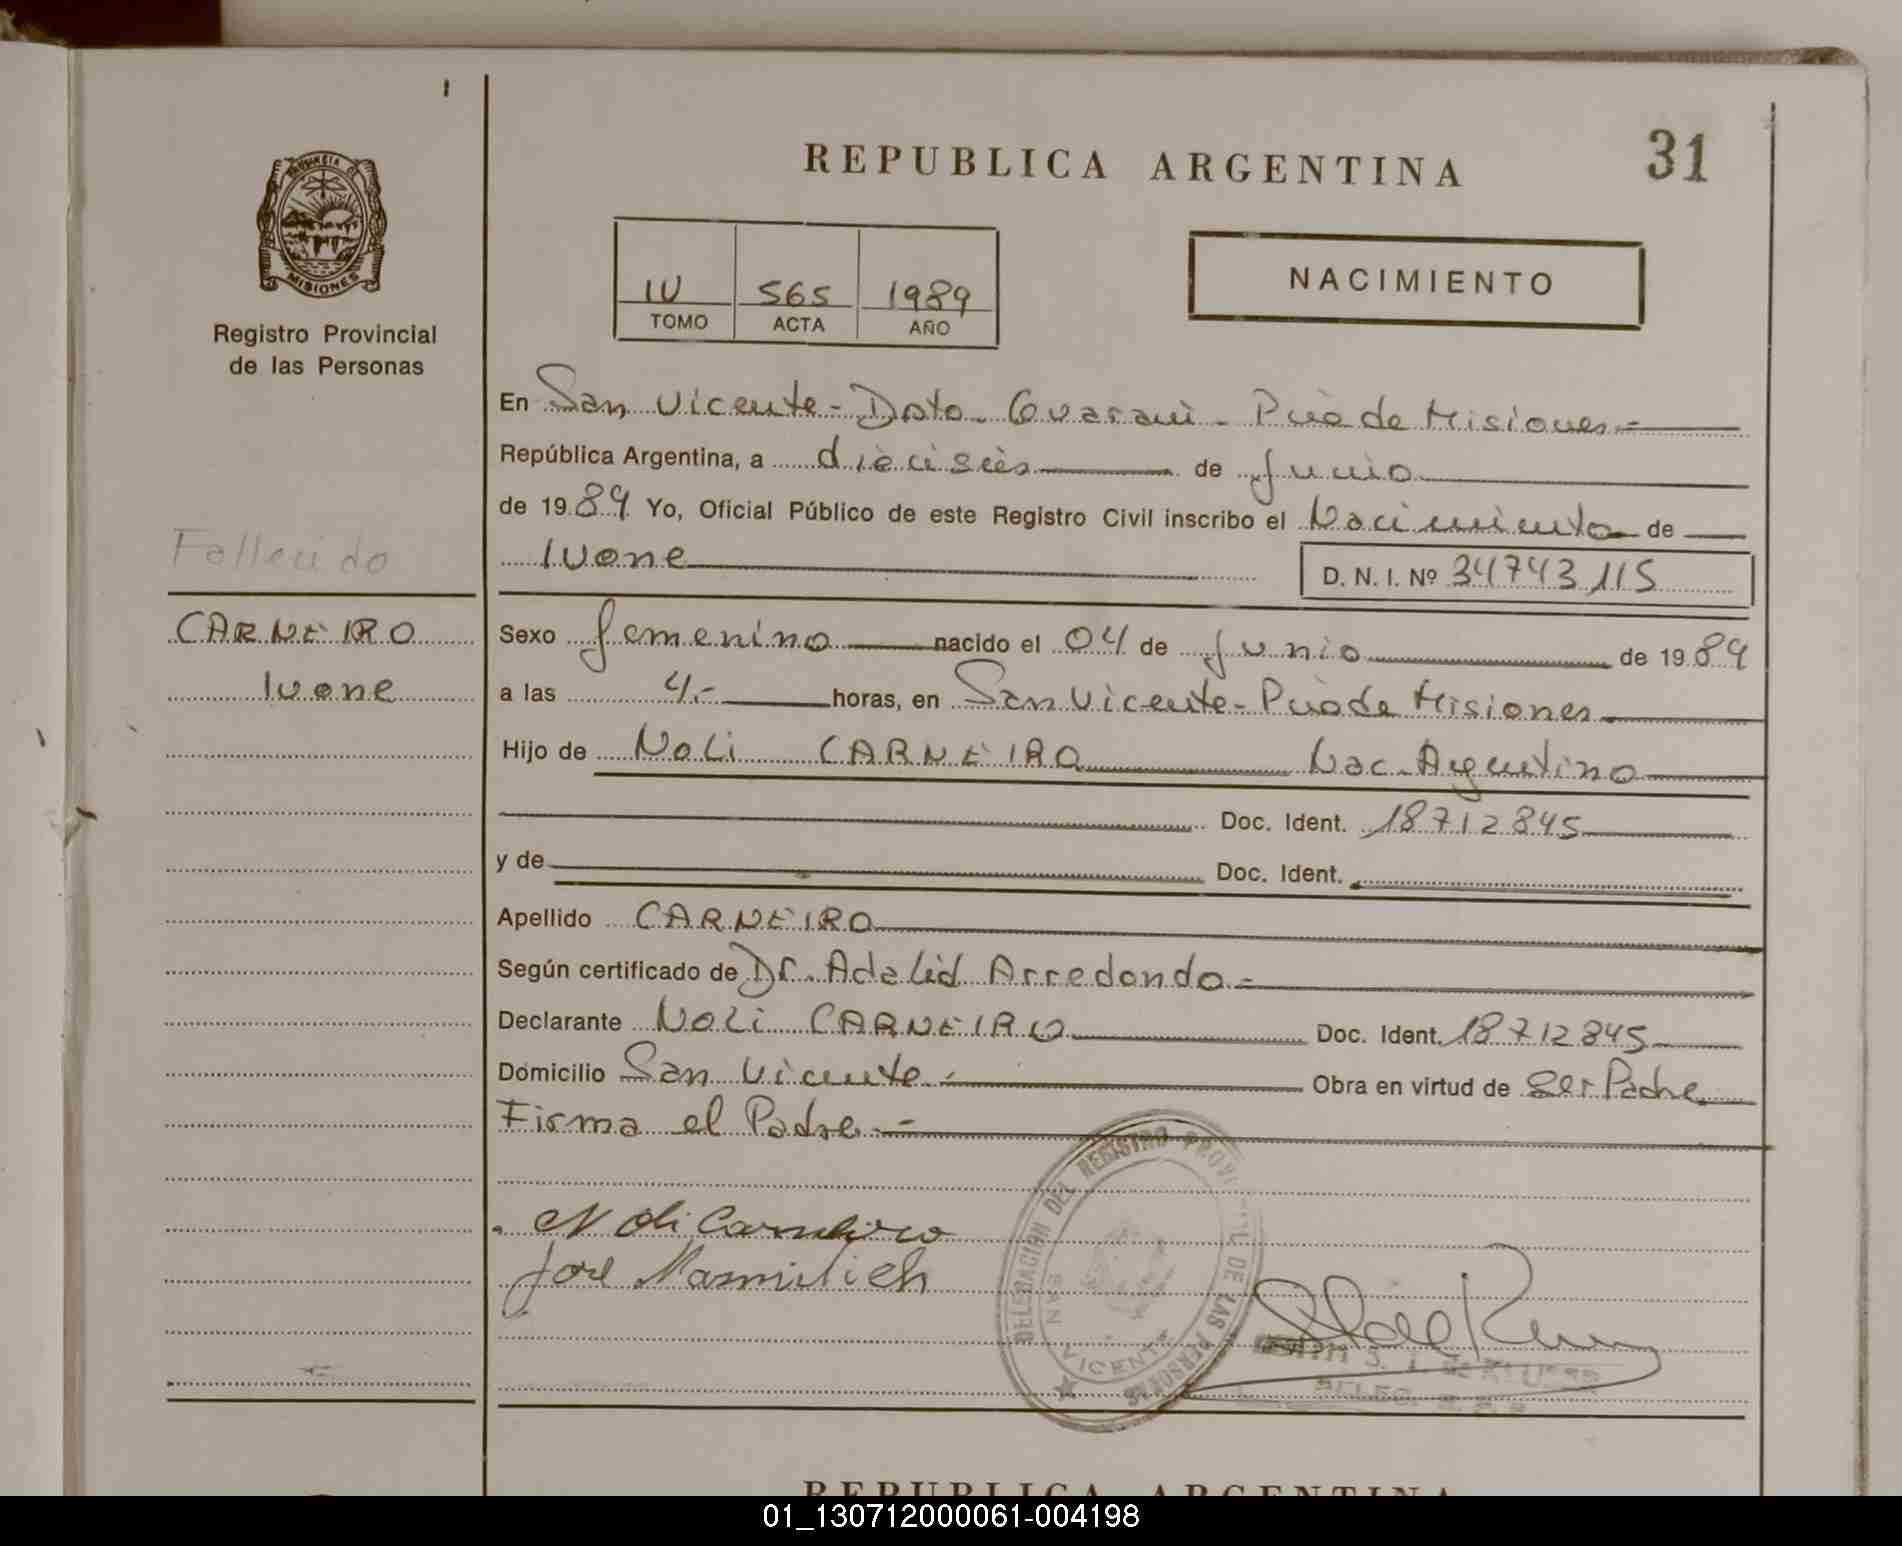 REPUBLICA ARGENTINA
31
PROVINCIA DE
MISIONES
Registro Provincial
de las Personas
IV 565 1989
TOMO ACTA AÑO
NACIMIENTO
En San Vicente - Dpto. Guaraní - Pcia de Misiones.-
República Argentina, a dieciséis de Junio
de 1989 Yo, Oficial Público de este Registro Civil inscribo el Nacimiento de
Ivone
D. N. I. Nº 34743115
Fallecido
CARNEIRO
Ivone
Sexo femenino nacido el 04 de Junio de 1989
a las 4.- horas, en San Vicente - Pcia de Misiones
Hijo de Noli CARNEIRO Nac. Argentino
Doc. Ident. 18712845
y de Doc. Ident.
Apellido CARNEIRO
Según certificado de Dr. Adalid Arredondo.-
Declarante Noli CARNEIRO Doc. Ident. 18712845
Domicilio San Vicente.- Obra en virtud de Ser Padre
Firma el Padre.-
Noli Carneiro
José
DELEGACION DEL REGISTRO PROVINCIAL DE LAS PERSONAS
SAN VICENTE
REPUBLICA ARGENTINA
01_130712000061-004198